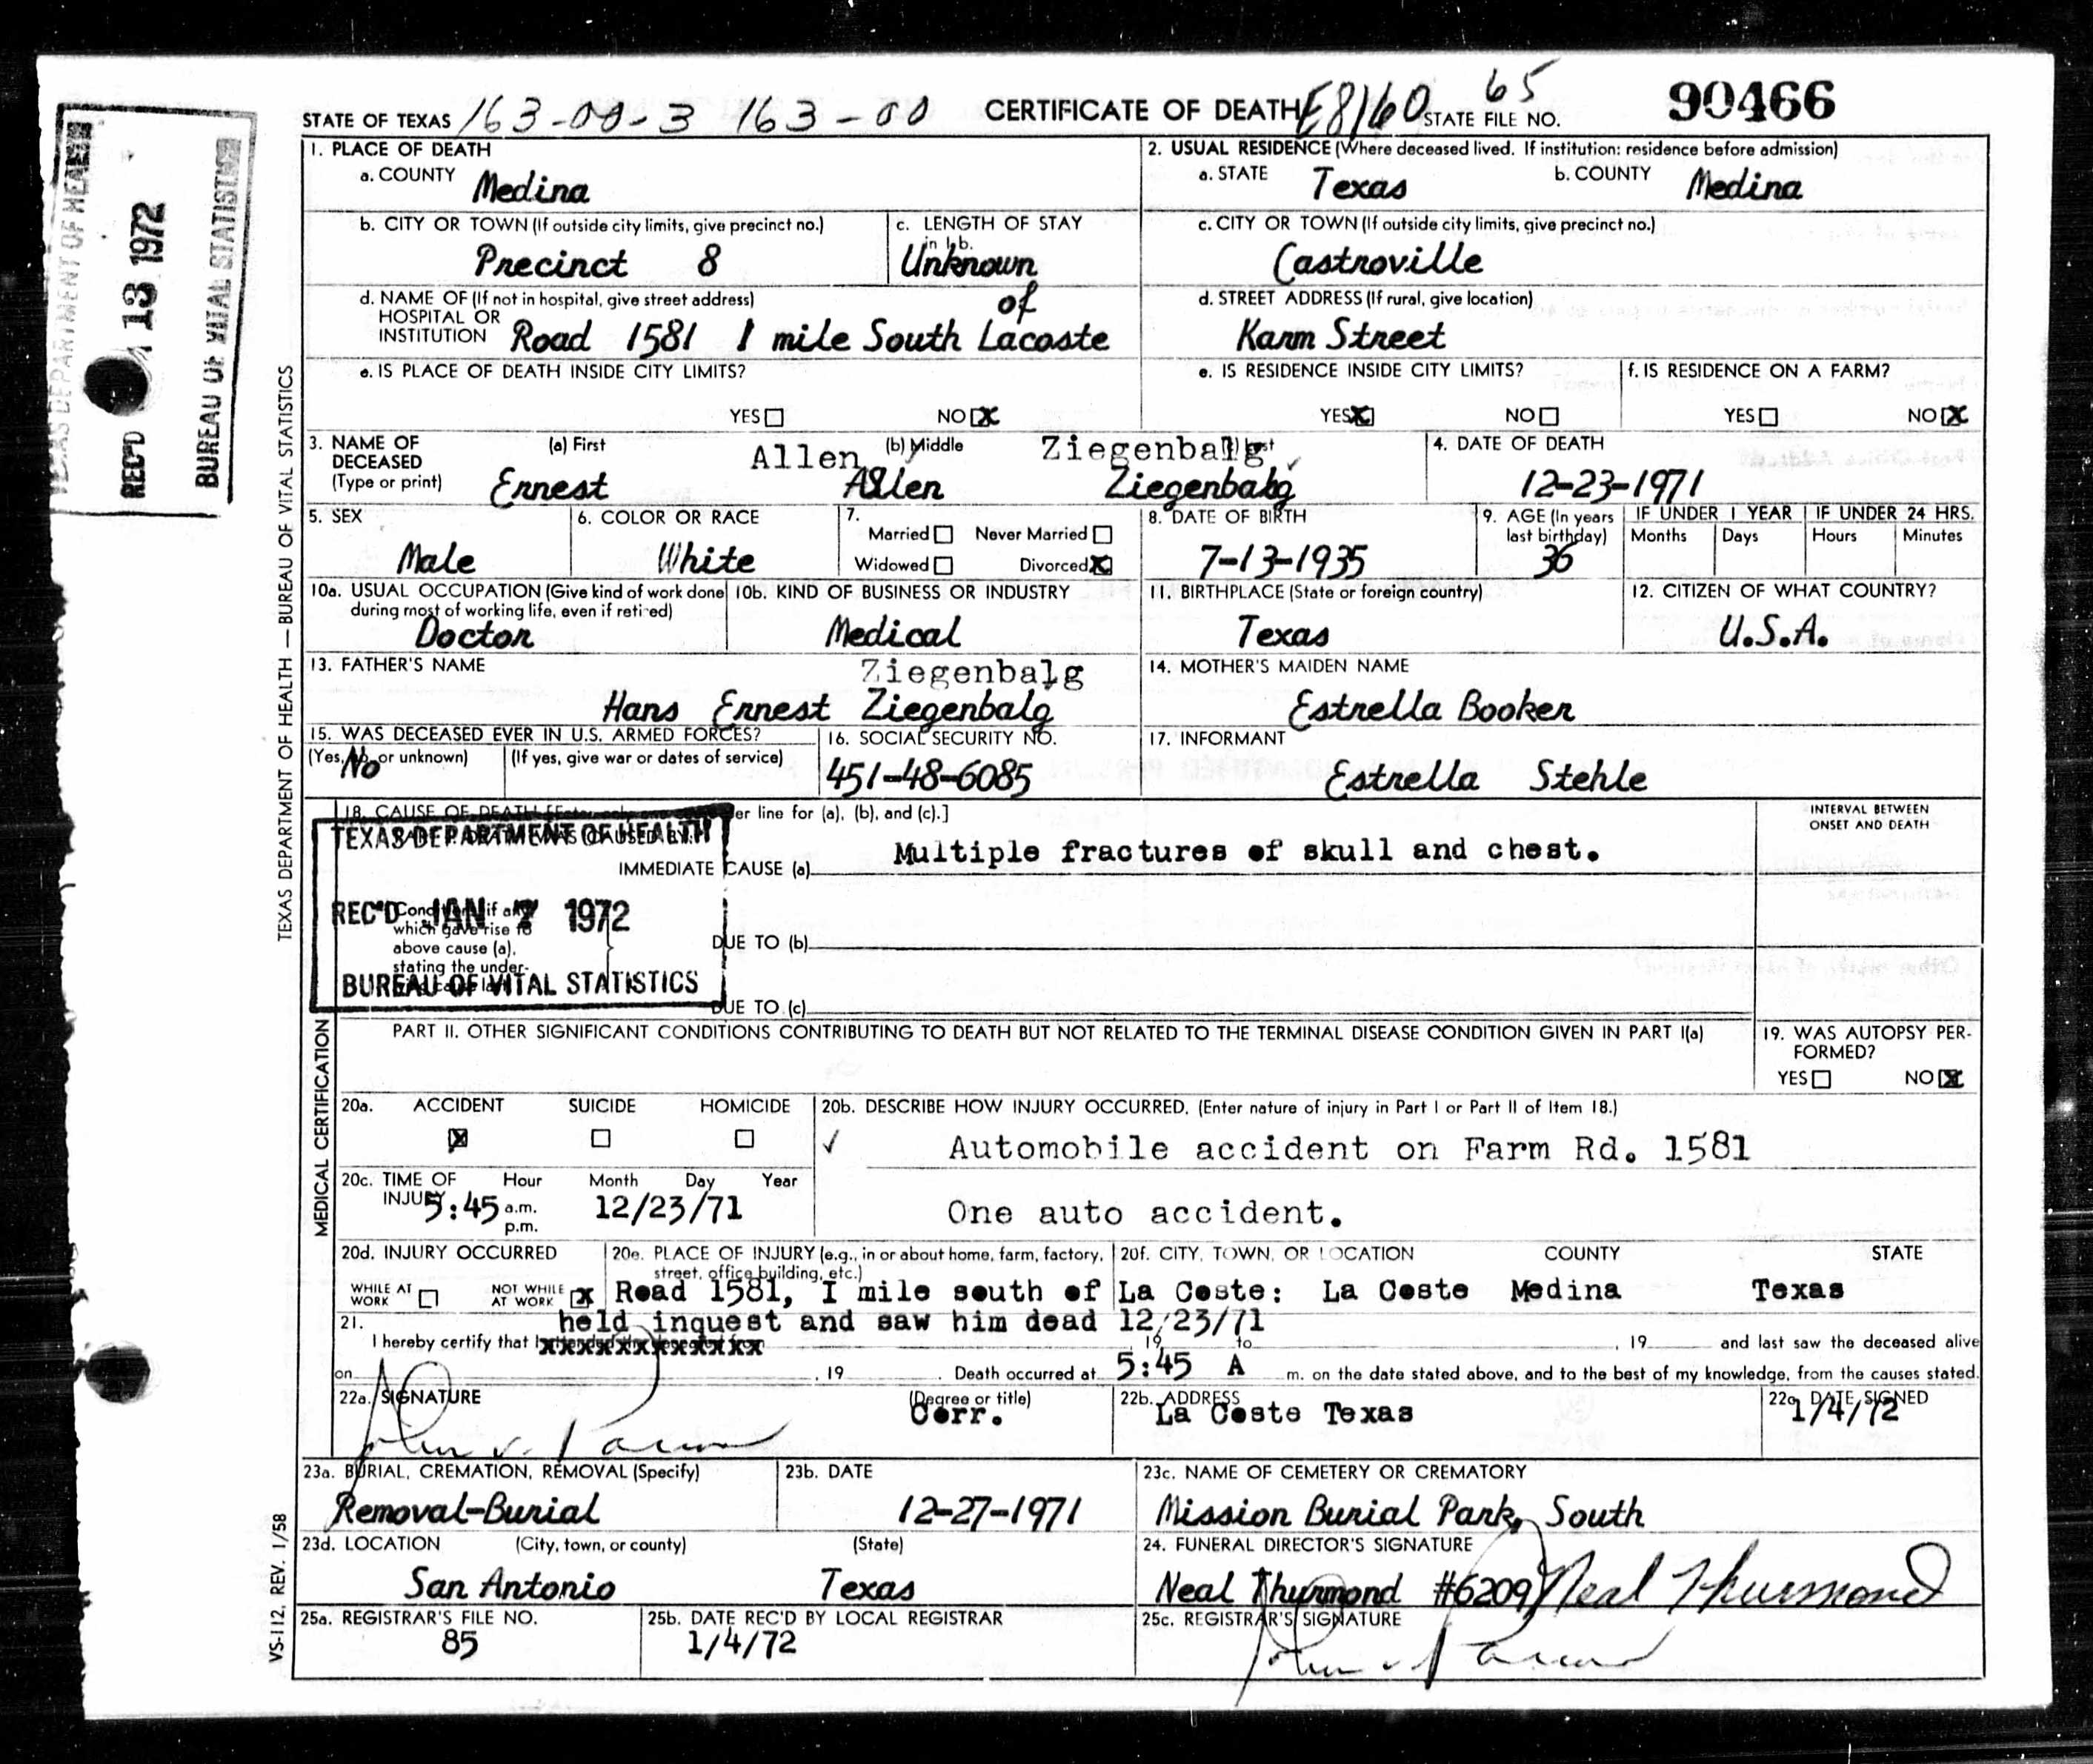 STATE OF TEXAS 163-00-3 163-00 CERTIFICATE OF DEATH E8160 65 STATE FILE NO. 90466
TEXAS DEPARTMENT OF HEALTH
REC'D 13 1972
BUREAU OF VITAL STATISTICS
TEXAS DEPARTMENT OF HEALTH — BUREAU OF VITAL STATISTICS
1. PLACE OF DEATH
a. COUNTY Medina
2. USUAL RESIDENCE (Where deceased lived. If institution: residence before admission)
a. STATE Texas b. COUNTY Medina
b. CITY OR TOWN (If outside city limits, give precinct no.)
Precinct 8
c. LENGTH OF STAY
in 1b.
Unknown
c. CITY OR TOWN (If outside city limits, give precinct no.)
Castroville
d. NAME OF (If not in hospital, give street address)
HOSPITAL OR
INSTITUTION Road 1581 1 mile South of Lacoste
d. STREET ADDRESS (If rural, give location)
Karm Street
e. IS PLACE OF DEATH INSIDE CITY LIMITS?
YES NO X
e. IS RESIDENCE INSIDE CITY LIMITS?
YES X NO
f. IS RESIDENCE ON A FARM?
YES NO X
3. NAME OF DECEASED (Type or print)
(a) First (b) Middle
Allen Ziegenbalg
Ernest Allen Ziegenbalg
4. DATE OF DEATH
12-23-1971
5. SEX
Male
6. COLOR OR RACE
White
7.
Married Never Married
Widowed Divorced X
8. DATE OF BIRTH
7-13-1935
9. AGE (In years last birthday)
36
IF UNDER 1 YEAR
Months Days
IF UNDER 24 HRS.
Hours Minutes
10a. USUAL OCCUPATION (Give kind of work done
during most of working life, even if retired)
Doctor
10b. KIND OF BUSINESS OR INDUSTRY
Medical
11. BIRTHPLACE (State or foreign country)
Texas
12. CITIZEN OF WHAT COUNTRY?
U.S.A.
13. FATHER'S NAME
Ziegenbalg
Hans Ernest Ziegenbalg
14. MOTHER'S MAIDEN NAME
Estrella Booker
15. WAS DECEASED EVER IN U.S. ARMED FORCES?
(Yes, no, or unknown) (If yes, give war or dates of service)
No
16. SOCIAL SECURITY NO.
451-48-6085
17. INFORMANT
Estrella Stehle
MEDICAL CERTIFICATION
18. CAUSE OF DEATH [Enter only one er line for (a), (b), and (c).]
INTERVAL BETWEEN
ONSET AND DEATH
TEXAS DEPARTMENT OF HEALTH
REC'D JAN 7 1972
BUREAU OF VITAL STATISTICS
IMMEDIATE CAUSE (a) Multiple fractures of skull and chest.
Conditions, if any
which gave rise to
above cause (a),
stating the under-
DUE TO (b)
DUE TO (c)
PART II. OTHER SIGNIFICANT CONDITIONS CONTRIBUTING TO DEATH BUT NOT RELATED TO THE TERMINAL DISEASE CONDITION GIVEN IN PART I(a)
19. WAS AUTOPSY PER-
FORMED?
YES NO X
20a. ACCIDENT X SUICIDE HOMICIDE
20b. DESCRIBE HOW INJURY OCCURRED. (Enter nature of injury in Part I or Part II of Item 18.)
✓ Automobile accident on Farm Rd. 1581
One auto accident.
20c. TIME OF INJURY Hour Month Day Year
5:45 a.m. p.m. 12/23/71
20d. INJURY OCCURRED
WHILE AT WORK NOT WHILE AT WORK X
20e. PLACE OF INJURY (e.g., in or about home, farm, factory,
street, office building, etc.)
20f. CITY, TOWN, OR LOCATION COUNTY STATE
Road 1581, I mile south of La Coste: La Coste Medina Texas
21. held inquest and saw him dead 12/23/71
I hereby certify that I 19 to , 19 and last saw the deceased alive
on , 19 . Death occurred at 5:45 A m. on the date stated above, and to the best of my knowledge, from the causes stated.
22a. SIGNATURE (Degree or title)
Corr.
22b. ADDRESS
La Coste Texas
22c. DATE SIGNED
1/4/72
23a. BURIAL, CREMATION, REMOVAL (Specify)
Removal-Burial
23b. DATE
12-27-1971
23c. NAME OF CEMETERY OR CREMATORY
Mission Burial Park, South
23d. LOCATION (City, town, or county) (State)
San Antonio Texas
24. FUNERAL DIRECTOR'S SIGNATURE
Neal Thurmond #6209 Neal Thurmond
25a. REGISTRAR'S FILE NO.
85
25b. DATE REC'D BY LOCAL REGISTRAR
1/4/72
25c. REGISTRAR'S SIGNATURE
VS-112, REV. 1/58